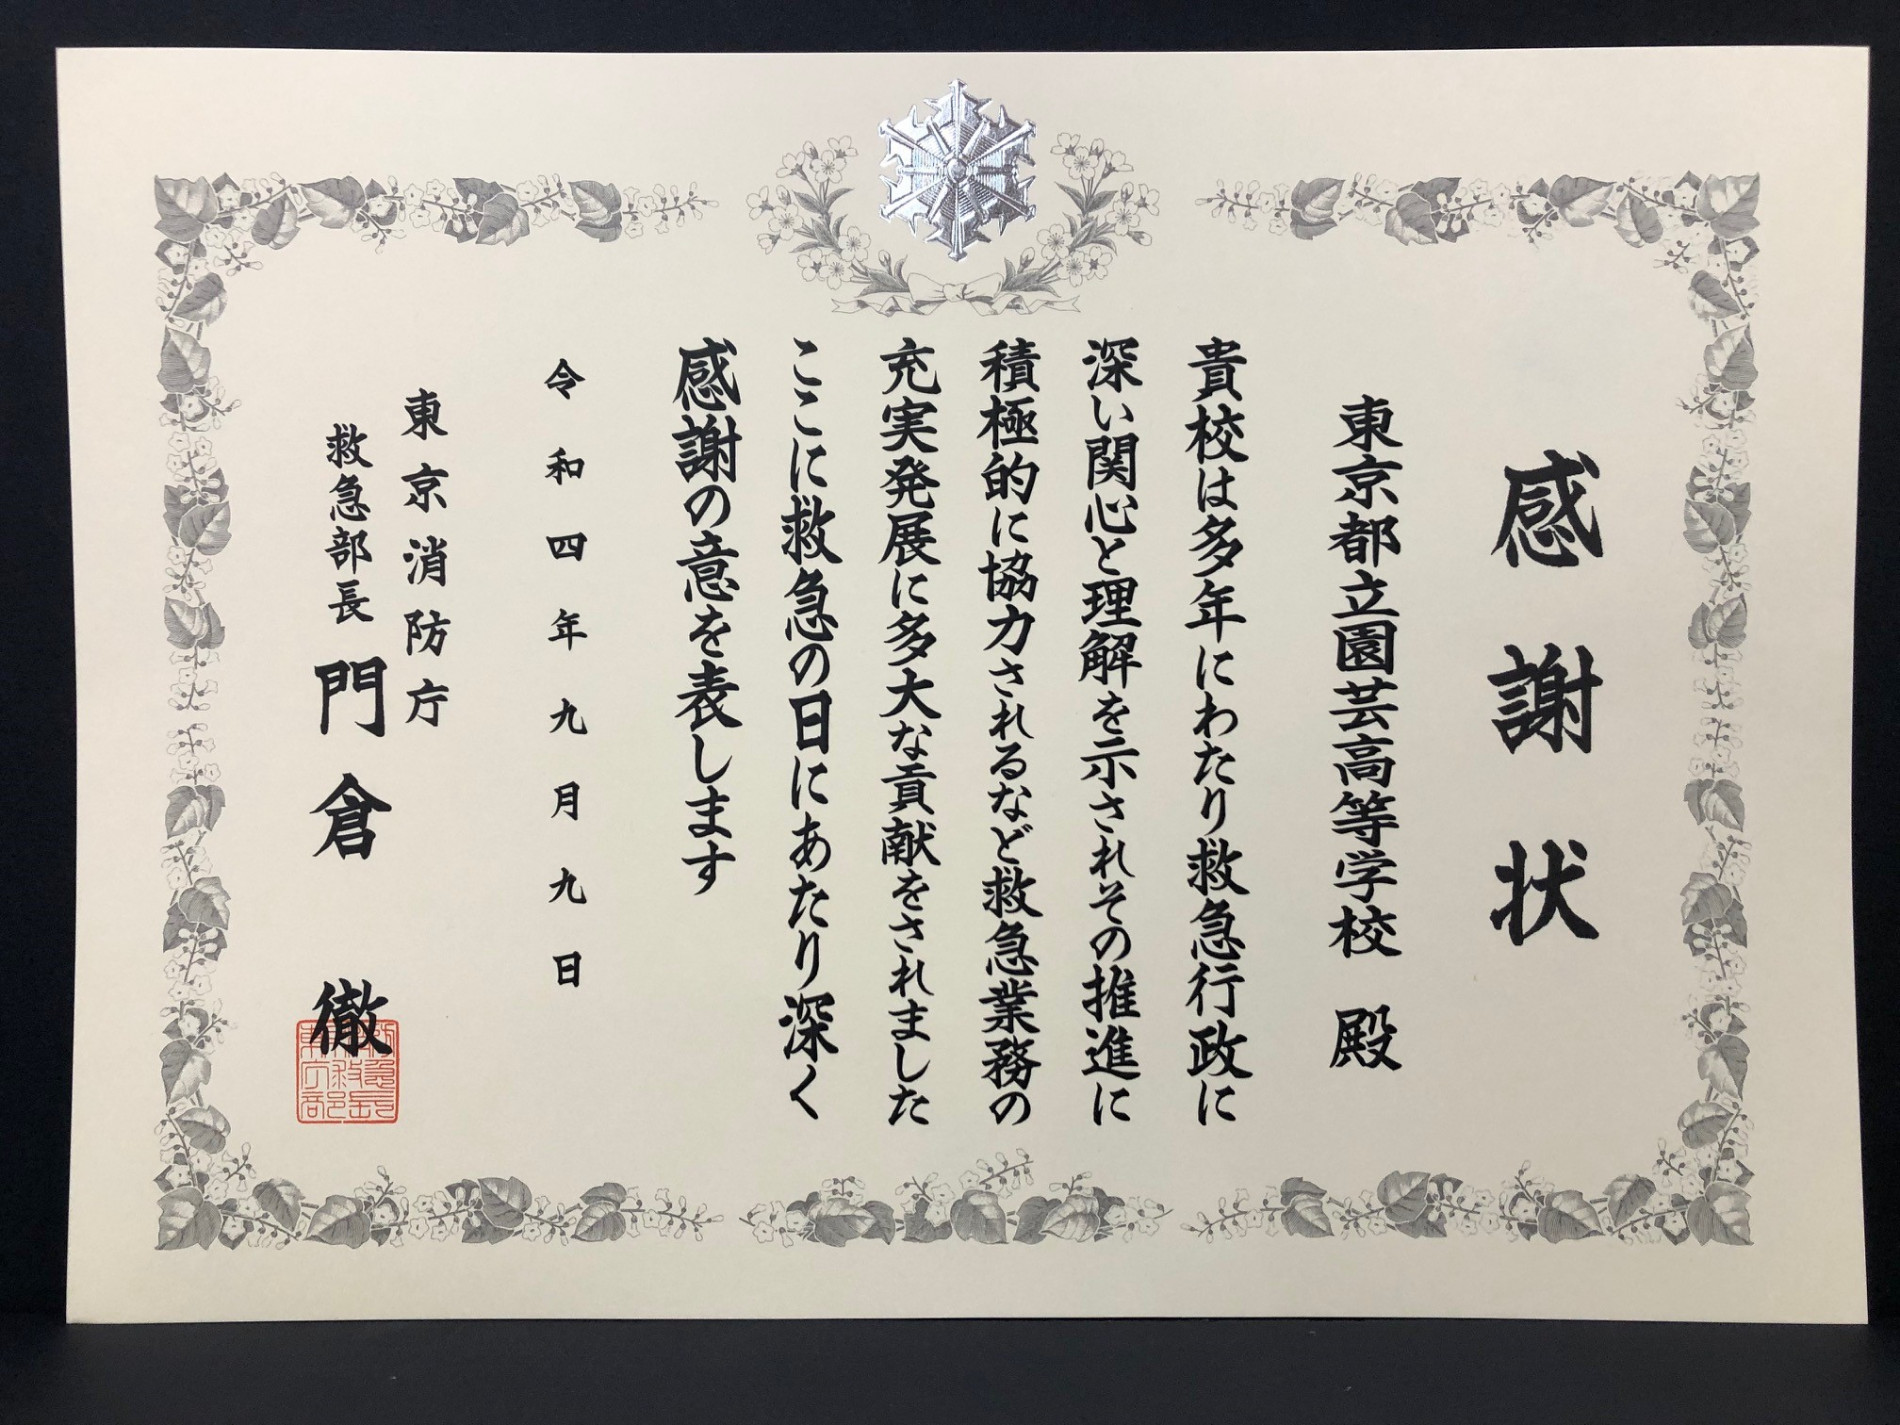 感謝状
東京都立園芸高等学校 殿
貴校は多年にわたり救急行政に
深い関心と理解を示されその推進に
積極的に協力されるなど救急業務の
充実発展に多大な貢献をされました
ここに救急の日にあたり深く
感謝の意を表します
令和四年九月九日
東京消防庁
救急部長 門倉 徹